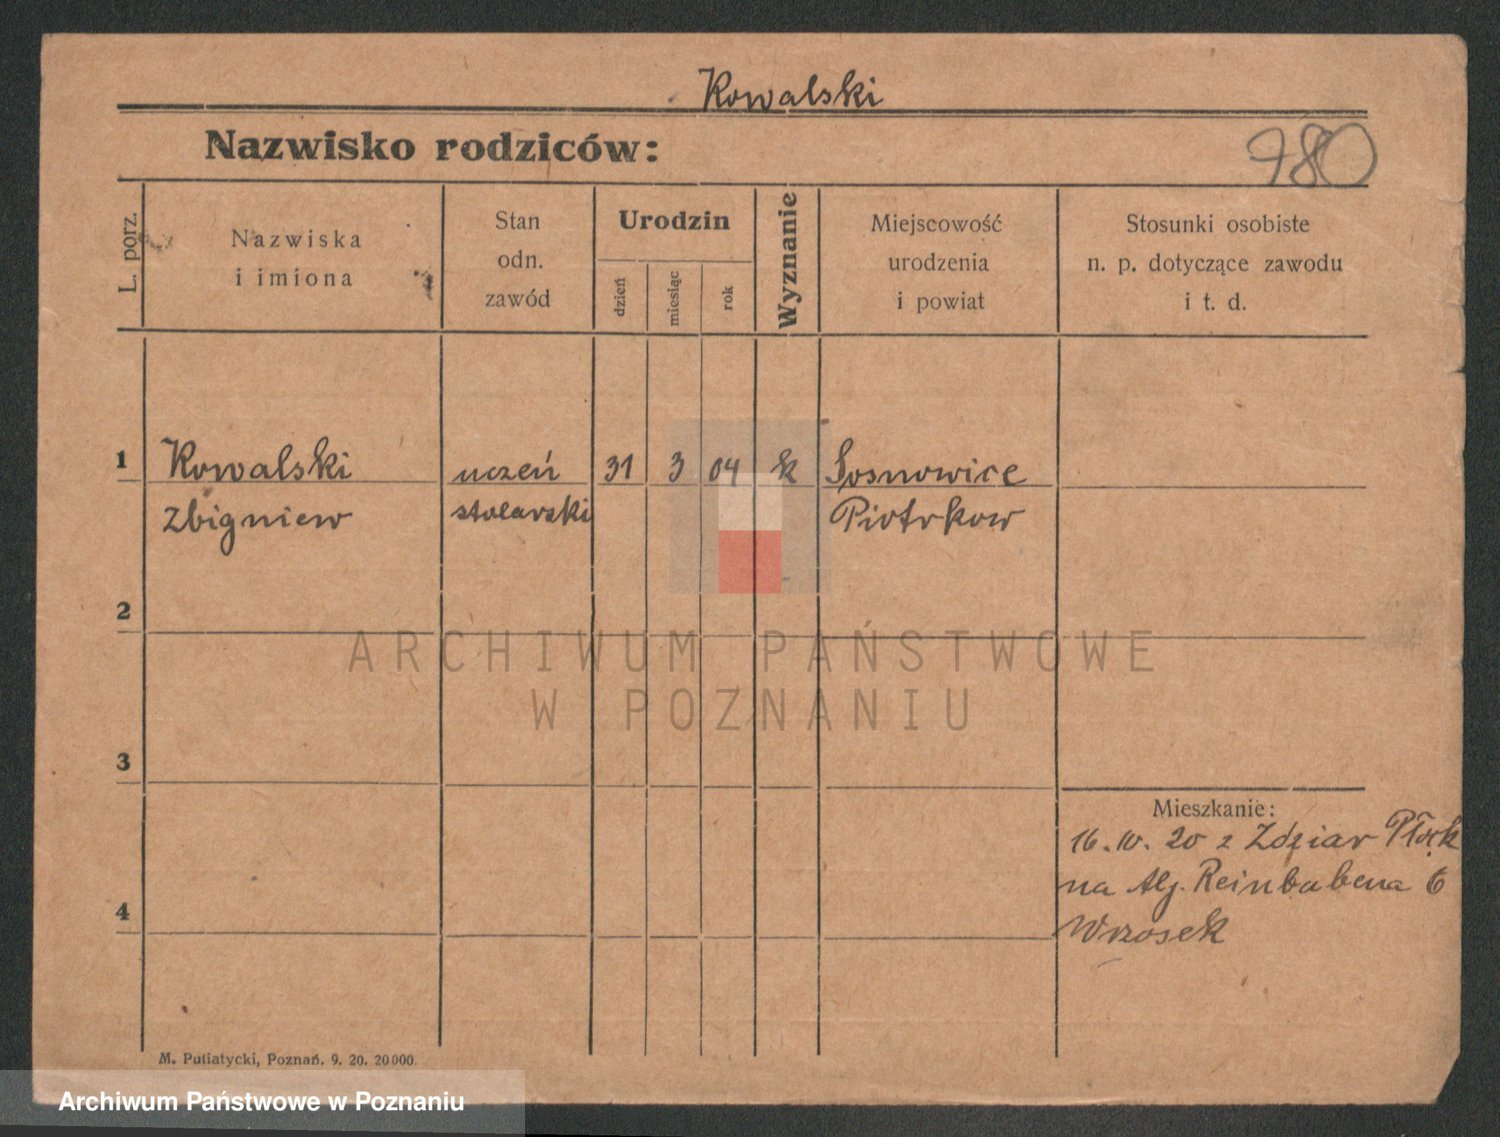 Kowalski
Nazwisko rodziców:
780
L. porz.
Nazwiska
i imiona
Stan
odn.
zawód
Urodzin
dzień
miesiąc
rok
Wyznanie
Miejscowość
urodzenia
i powiat
Stosunki osobiste
n. p. dotyczące zawodu
i t. d.
1 Kowalski uczeń 31 3 04 k Sosnowice
Zbigniew stolarski Piotrkow
2
ARCHIWUM PAŃSTWOWE
W POZNANIU
3
Mieszkanie:
16. IV. 20 z Zdziar Płock
na Alj. Reinbabena 6
4
Wrzosek
M. Putiatycki, Poznań. 9. 20. 20000.
Archiwum Państwowe w Poznaniu